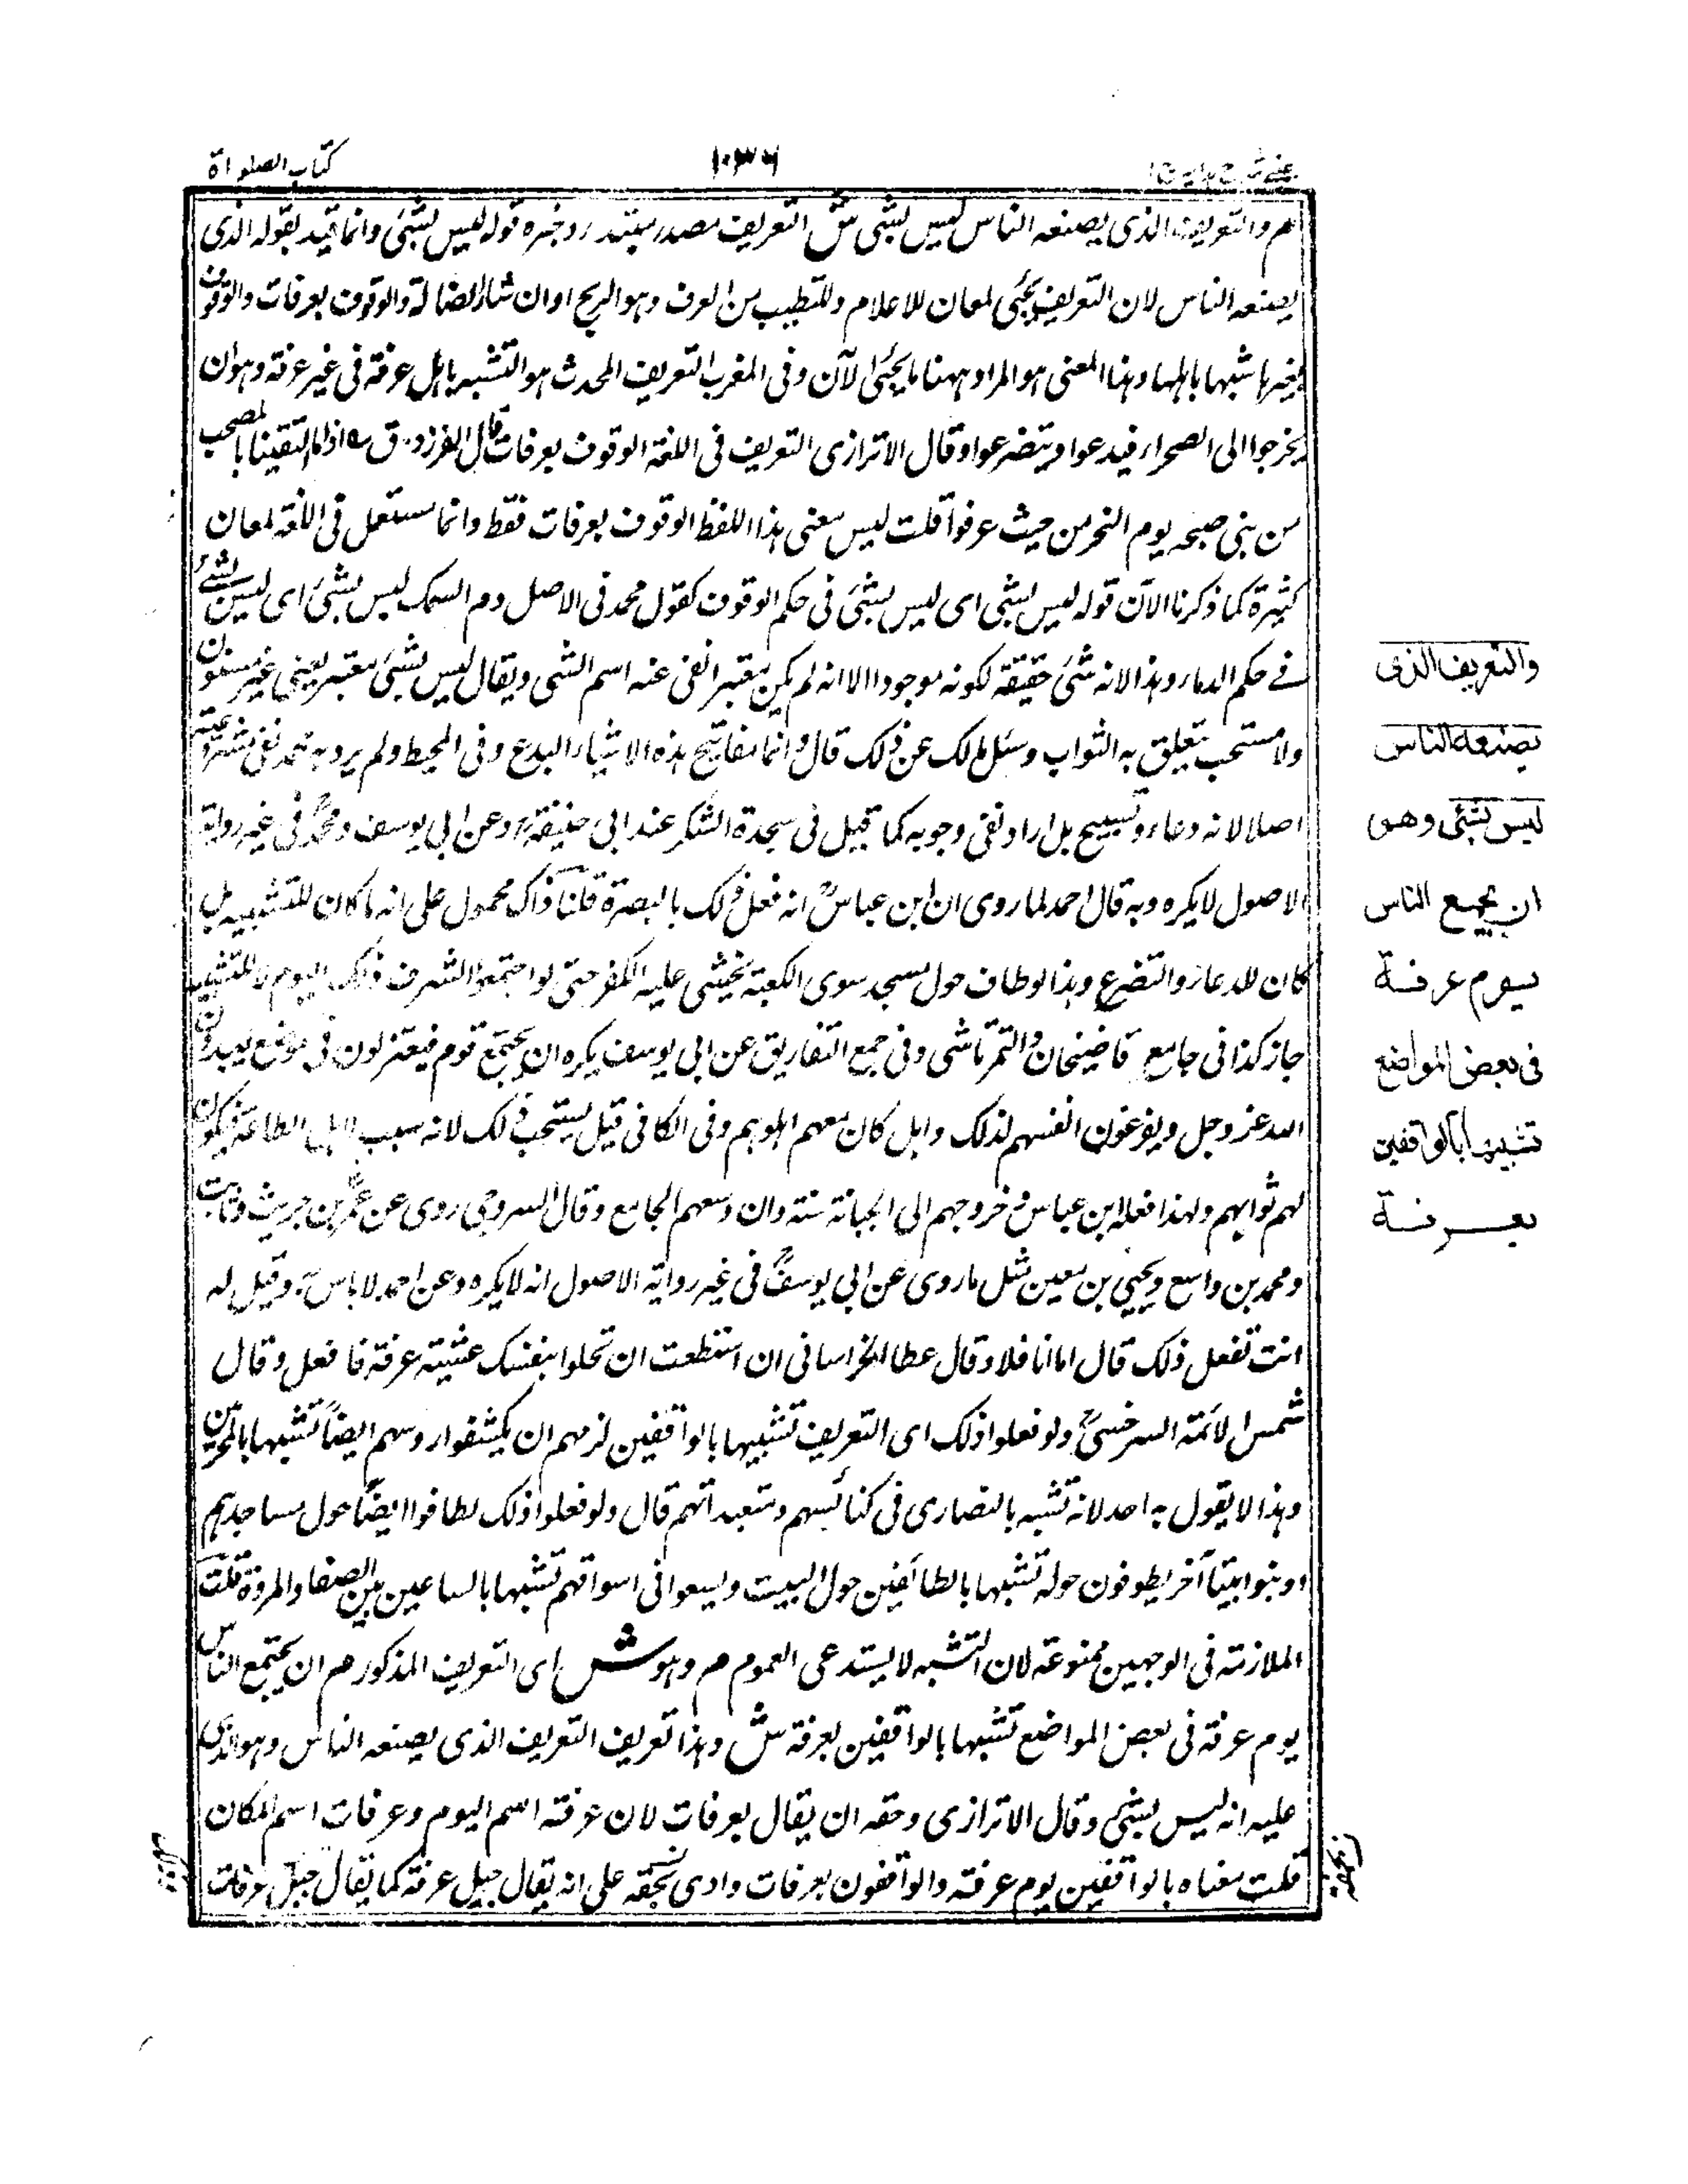 كتاب الصلواة
١٠٣٦
م والتعريف الذى يصنعه الناس ليس بشئ ش التعريف مصدر مبتدا وخبره قوله ليس بشئ وانما قيد بقوله الذى
يصنعه الناس لان التعريف يجئ لمعان للاعلام وللتطيب من العرف وهو الريح وانشاد الضالة والوقوف بعرفات والوقوف
بغيرها شبها باهلها وهذا المعنى هو المراد ههنا ما يجئ الآن وفى المغرب التعريف المحدث هو التشبه باهل عرفة فى غير عرفة وهو ان
يخرجوا الى الصحراء فيدعوا ويتضرعوا وقال الاترازى التعريف فى اللغة الوقوف بعرفات قال الفرزدق ؎ اذا ما التقينا بالمحصب
من بنى صبحه يوم النحر من حيث عرفوا قلت ليس معنى هذا اللفظ الوقوف بعرفات فقط وانما يستعمل فى اللغة لمعان
كثيرة كما ذكرنا الآن قوله ليس بشئ اى ليس بشئ فى حكم الوقوف كقول محمد فى الاصل دم السمك ليس بشئ اى ليس بشئ
فى حكم الدماء وهذا لانه شئ حقيقة لكونه موجودا الا انه لم يكن معتبرا نفى عنه اسم الشئ ويقال ليس بشئ معتبر يعنى غير مسنون
ولا مستحب يتعلق به الثواب وسئل مالك عن ذلك قال وانما مفاتيح هذه الاشياء البدع وفى المحيط ولم يرد به محمد نفى مشروعيته
اصلا لانه دعاء وتسبيح بل اراد نفى وجوبه كما قيل فى سجدة الشكر عند ابى حنيفة وعن ابى يوسف ومحمد فى غير رواية
الاصول لا يكره وبه قال احمد لما روى ان ابن عباس انه فعل ذلك بالبصرة قلنا ذاك محمول على انه ما كان للتشبيه بل
كان للدعاء والتضرع وهذا لو طاف حول مسجد سوى الكعبة يخشى عليه الكفر حتى لو اجتمعوا لشرف ذلك اليوم لا للتشبيه
جاز كذا فى جامع قاضيخان والتمرتاشى وفى جمع التفاريق عن ابى يوسف يكره ان يجتمع قوم فيعتزلون فى موضع يعبدون
الله عز وجل ويفرغون انفسهم لذلك وان كان معهم اهلوهم وفى الكافى قيل يستحب ذلك لانه سبب اهل الطاعة فيكون
لهم ثوابهم ولهذا فعله ابن عباس وخروجهم الى الجبانة سنة وان وسعهم الجامع وقال السروجى روى عن عمرو بن حريث وثابت
ومحمد بن واسع ويحيى بن معين مثل ما روى عن ابى يوسف فى غير رواية الاصول انه لا يكره وعن احمد لا باس به وقيل له
انت تفعل ذلك قال اما انا فلا وقال عطا الخراسانى ان استطعت ان تخلوا بنفسك عشية عرفة فافعل وقال
شمس الائمة السرخسى ولو فعلوا ذلك اى التعريف تشبيها بالواقفين لزمهم ان يكشفوا روسهم ايضا تشبها بالمحرمين
وهذا لا يقول به احد لانه تشبه بالنصارى فى كنائسهم ومتعبداتهم قال ولو فعلوا ذلك لطافوا ايضا حول مساجدهم
او بنوا بيتا آخر يطوفون حوله تشبها بالطائفين حول البيت ويسعوا فى اسواقهم تشبها بالساعين بين الصفا والمروة قلت
الملازمة فى الوجهين ممنوعة لان التشبه لا يستدعى العموم م وهو ش اى التعريف المذكور م ان يجتمع الناس
يوم عرفة فى بعض المواضع تشبها بالواقفين بعرفة ش وهذا تعريف التعريف الذى يصنعه الناس وهو الذى
عليه انه ليس بشئ وقال الاترازى وحقه ان يقال بعرفات لان عرفة اسم اليوم وعرفات اسم المكان
قلت معناه بالواقفين يوم عرفة والواقفون بعرفات وادى نحقه على انه يقال جبل عرفة كما يقال جبل عرفات
والتعريف الذى
يصنعه الناس
ليس بشئ وهو
ان يجمع الناس
يوم عرفة
فى بعض المواضع
تشبيها بالواقفين
بعرفة